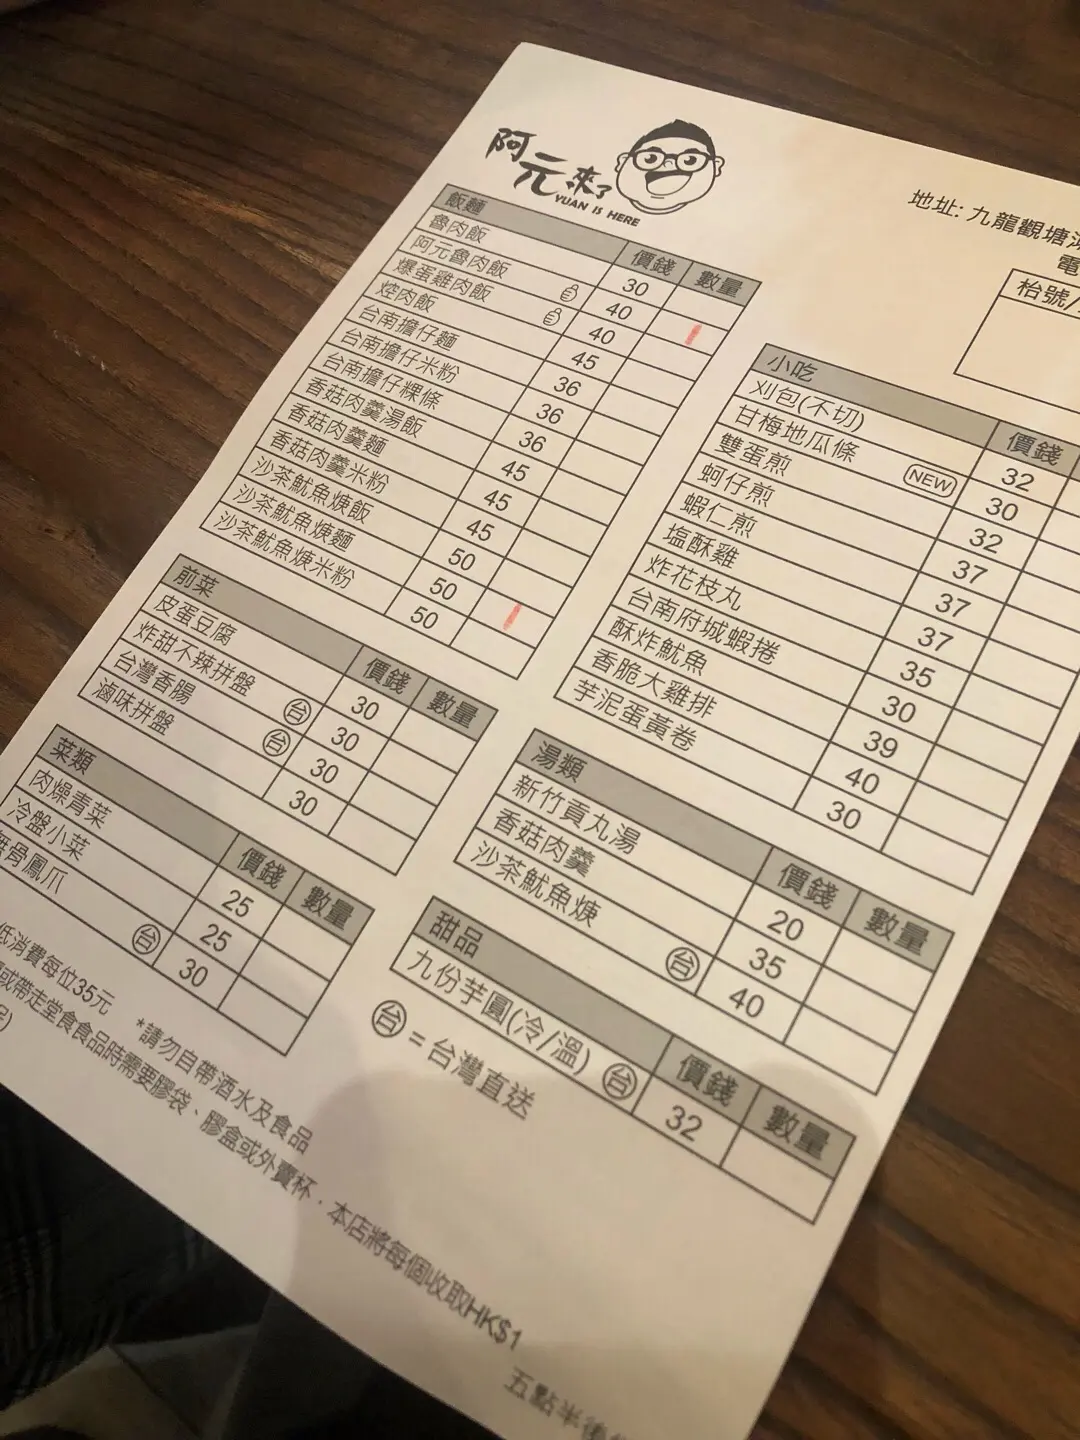 阿元來了
YUAN IS HERE
地址: 九龍觀塘
電
枱號/
飯麵 價錢 數量
魯肉飯 30
阿元魯肉飯 40
爆蛋雞肉飯 40
焢肉飯 45
台南擔仔麵 36
台南擔仔米粉 36
台南擔仔粿條 36
香菇肉羹湯飯 45
香菇肉羹麵 45
香菇肉羹米粉 45
沙茶魷魚焿飯 50
沙茶魷魚焿麵 50
沙茶魷魚焿米粉 50
前菜 價錢 數量
皮蛋豆腐 30
炸甜不辣拼盤 台 30
台灣香腸 台 30
滷味拼盤 30
菜類 價錢 數量
肉燥青菜 25
冷盤小菜 25
無骨鳳爪 台 30
小吃 價錢
刈包(不切) 32
甘梅地瓜條 NEW 30
雙蛋煎 32
蚵仔煎 37
蝦仁煎 37
塩酥雞 37
炸花枝丸 35
台南府城蝦捲 30
酥炸魷魚 39
香脆大雞排 40
芋泥蛋黃卷 30
湯類 價錢 數量
新竹貢丸湯 20
香菇肉羹 35
沙茶魷魚焿 台 40
甜品 價錢 數量
九份芋圓(冷/溫) 台 32
台 = 台灣直送
低消費每位35元 *請勿自帶酒水及食品
或帶走堂食食品時需要膠袋、膠盒或外賣杯．本店將每個收取HK$1
五點半後